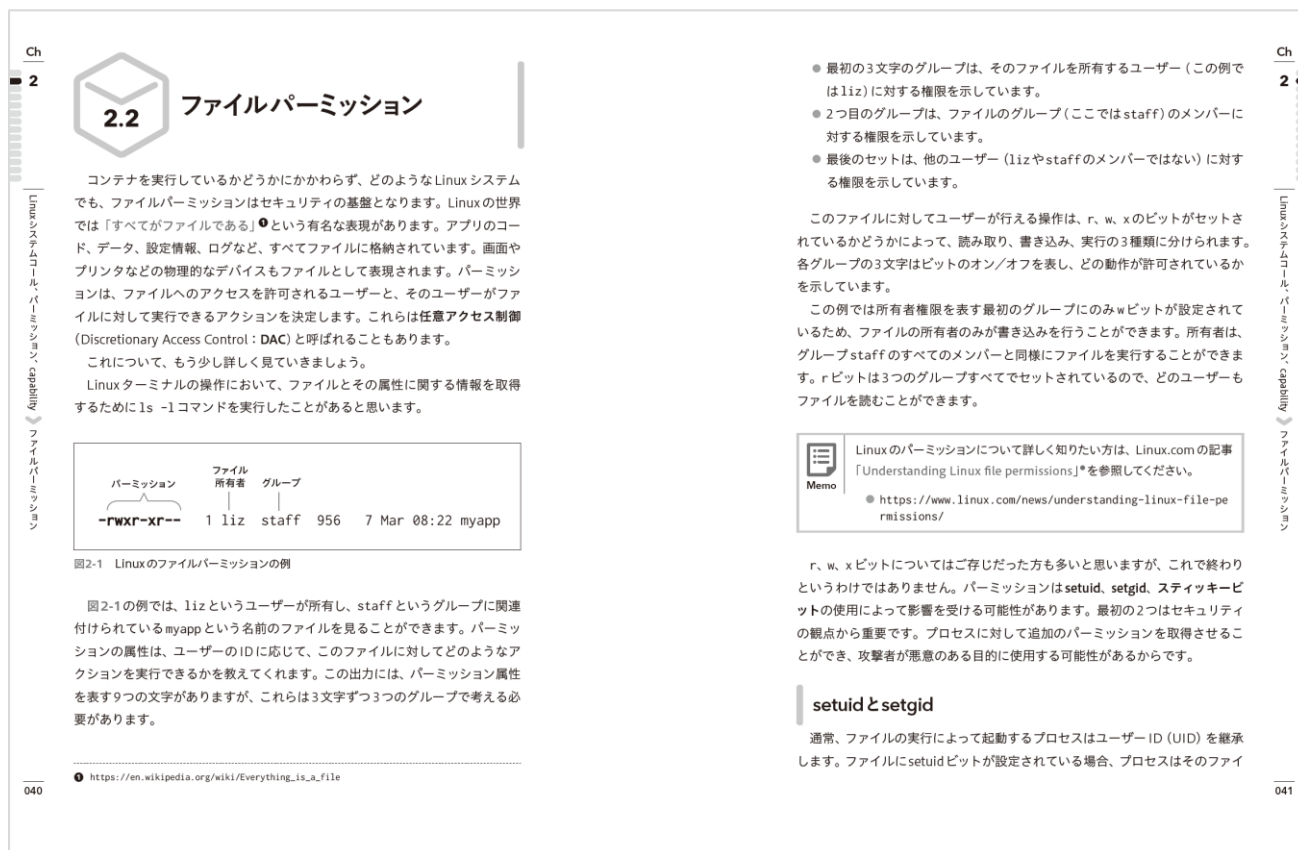 Ch
2
2.2
ファイルパーミッション
コンテナを実行しているかどうかにかかわらず、どのようなLinuxシステム
でも、ファイルパーミッションはセキュリティの基盤となります。Linuxの世界
では「すべてがファイルである」❶という有名な表現があります。アプリのコー
ド、データ、設定情報、ログなど、すべてファイルに格納されています。画面や
プリンタなどの物理的なデバイスもファイルとして表現されます。パーミッシ
ョンは、ファイルへのアクセスを許可されるユーザーと、そのユーザーがファ
イルに対して実行できるアクションを決定します。これらは任意アクセス制御
（Discretionary Access Control：DAC）と呼ばれることもあります。
これについて、もう少し詳しく見ていきましょう。
Linuxターミナルの操作において、ファイルとその属性に関する情報を取得
するためにls -lコマンドを実行したことがあると思います。
パーミッション
ファイル
所有者
グループ
-rwxr-xr-- 1 liz staff 956 7 Mar 08:22 myapp
図2-1 Linuxのファイルパーミッションの例
図2-1の例では、lizというユーザーが所有し、staffというグループに関連
付けられているmyappという名前のファイルを見ることができます。パーミッ
ションの属性は、ユーザーのIDに応じて、このファイルに対してどのようなア
クションを実行できるかを教えてくれます。この出力には、パーミッション属性
を表す9つの文字がありますが、これらは3文字ずつ3つのグループで考える必
要があります。
❶ https://en.wikipedia.org/wiki/Everything_is_a_file
Linuxシステムコール、パーミッション、capability
ファイルパーミッション
040
● 最初の3文字のグループは、そのファイルを所有するユーザー（この例で
はliz）に対する権限を示しています。
● 2つ目のグループは、ファイルのグループ（ここではstaff）のメンバーに
対する権限を示しています。
● 最後のセットは、他のユーザー（lizやstaffのメンバーではない）に対す
る権限を示しています。
このファイルに対してユーザーが行える操作は、r、w、xのビットがセットさ
れているかどうかによって、読み取り、書き込み、実行の3種類に分けられます。
各グループの3文字はビットのオン／オフを表し、どの動作が許可されているか
を示しています。
この例では所有者権限を表す最初のグループにのみwビットが設定されて
いるため、ファイルの所有者のみが書き込みを行うことができます。所有者は、
グループstaffのすべてのメンバーと同様にファイルを実行することができま
す。rビットは3つのグループすべてでセットされているので、どのユーザーも
ファイルを読むことができます。
Memo
Linuxのパーミッションについて詳しく知りたい方は、Linux.comの記事
「Understanding Linux file permissions」●を参照してください。
● https://www.linux.com/news/understanding-linux-file-pe
rmissions/
r、w、xビットについてはご存じだった方も多いと思いますが、これで終わり
というわけではありません。パーミッションはsetuid、setgid、スティッキービ
ットの使用によって影響を受ける可能性があります。最初の2つはセキュリティ
の観点から重要です。プロセスに対して追加のパーミッションを取得させるこ
とができ、攻撃者が悪意のある目的に使用する可能性があるからです。
setuidとsetgid
通常、ファイルの実行によって起動するプロセスはユーザーID（UID）を継承
します。ファイルにsetuidビットが設定されている場合、プロセスはそのファイ
Ch
2
Linuxシステムコール、パーミッション、capability
ファイルパーミッション
041